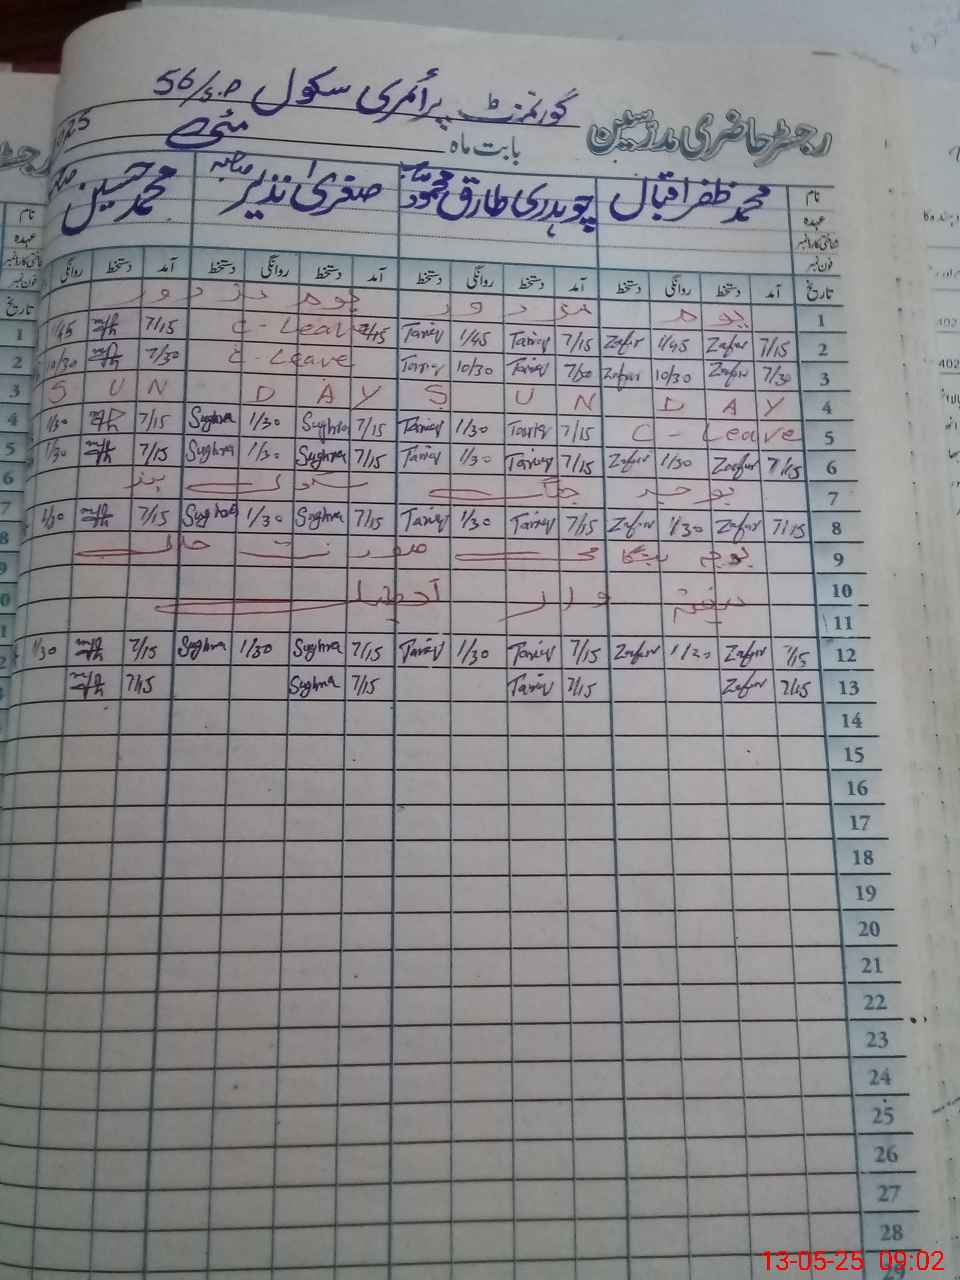 گورنمنٹ پرائمری سکول 56/S.P
رجسٹر حاضری مدرسین
بابت ماہ مئی 2025
نام محمد ظفر اقبال چوہدری طارق محمود صاحب صغریٰ نذیر صاحبہ محمد حسین
عہدہ
شناختی کارڈ نمبر
فون نمبر
تاریخ آمد دستخط روانگی دستخط آمد دستخط روانگی دستخط آمد دستخط روانگی دستخط آمد دستخط روانگی
1 یوم مزدور یوم مزدور
2 7/15 Zafar 1/45 Zafar 7/15 Tariq 1/45 Tariq 7/15 C - Leave 7/15 1/45
3 7/30 Zafar 10/30 Zafar 7/30 Tariq 10/30 Tariq C - Leave 7/30 10/30
4 S U N D A Y S U N D A Y
5 C - Leave 7/15 Tariq 1/30 Tariq 7/15 Sughra 1/30 Sughra 7/15 1/30
6 7/15 Zafar 1/30 Zafar 7/15 Tariq 1/30 Tariq 7/15 Sughra 1/30 Sughra 7/15 1/30
7 بوجہ جنگ سکول بند
8 7/15 Zafar 1/30 Zafar 7/15 Tariq 1/30 Tariq 7/15 Sughra 1/30 Sughra 7/15 1/30
9 صورت حال
10 ہفتہ وار
11
12 7/15 Zafar 1/30 Zafar 7/15 Tariq 1/30 Tariq 7/15 Sughra 1/30 Sughra 7/15 1/30
13 7/15 Zafar 7/15 Tariq 7/15 Sughra 7/15
14
15
16
17
18
19
20
21
22
23
24
25
26
27
28
13-05-25 09:02